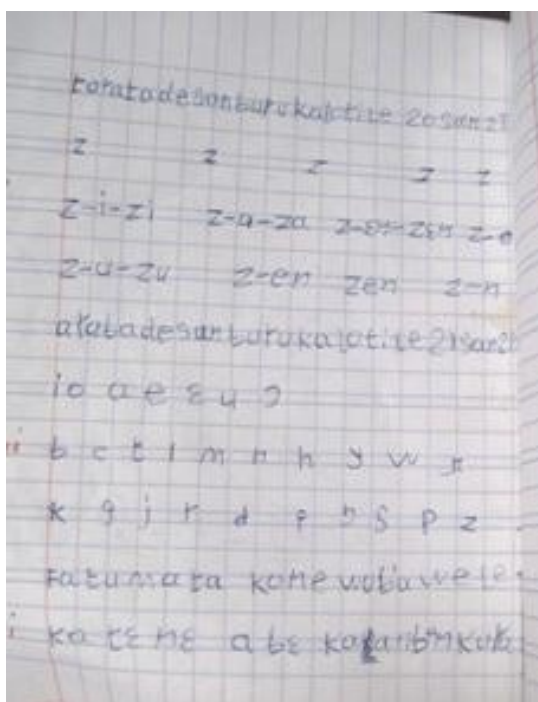 taratadesanburukalotile 20san21
z z z z z
z-i-zi z-a-za z-ɛn-zɛn z-o
z-u-zu z-en zen z-n
arabadesanburukalotile21san21
i o a e ɛ u ɔ
b c t l m n h y w
k g j r d f ŋ s p z
fatumata kone
ko tɛnɛ a bɛ